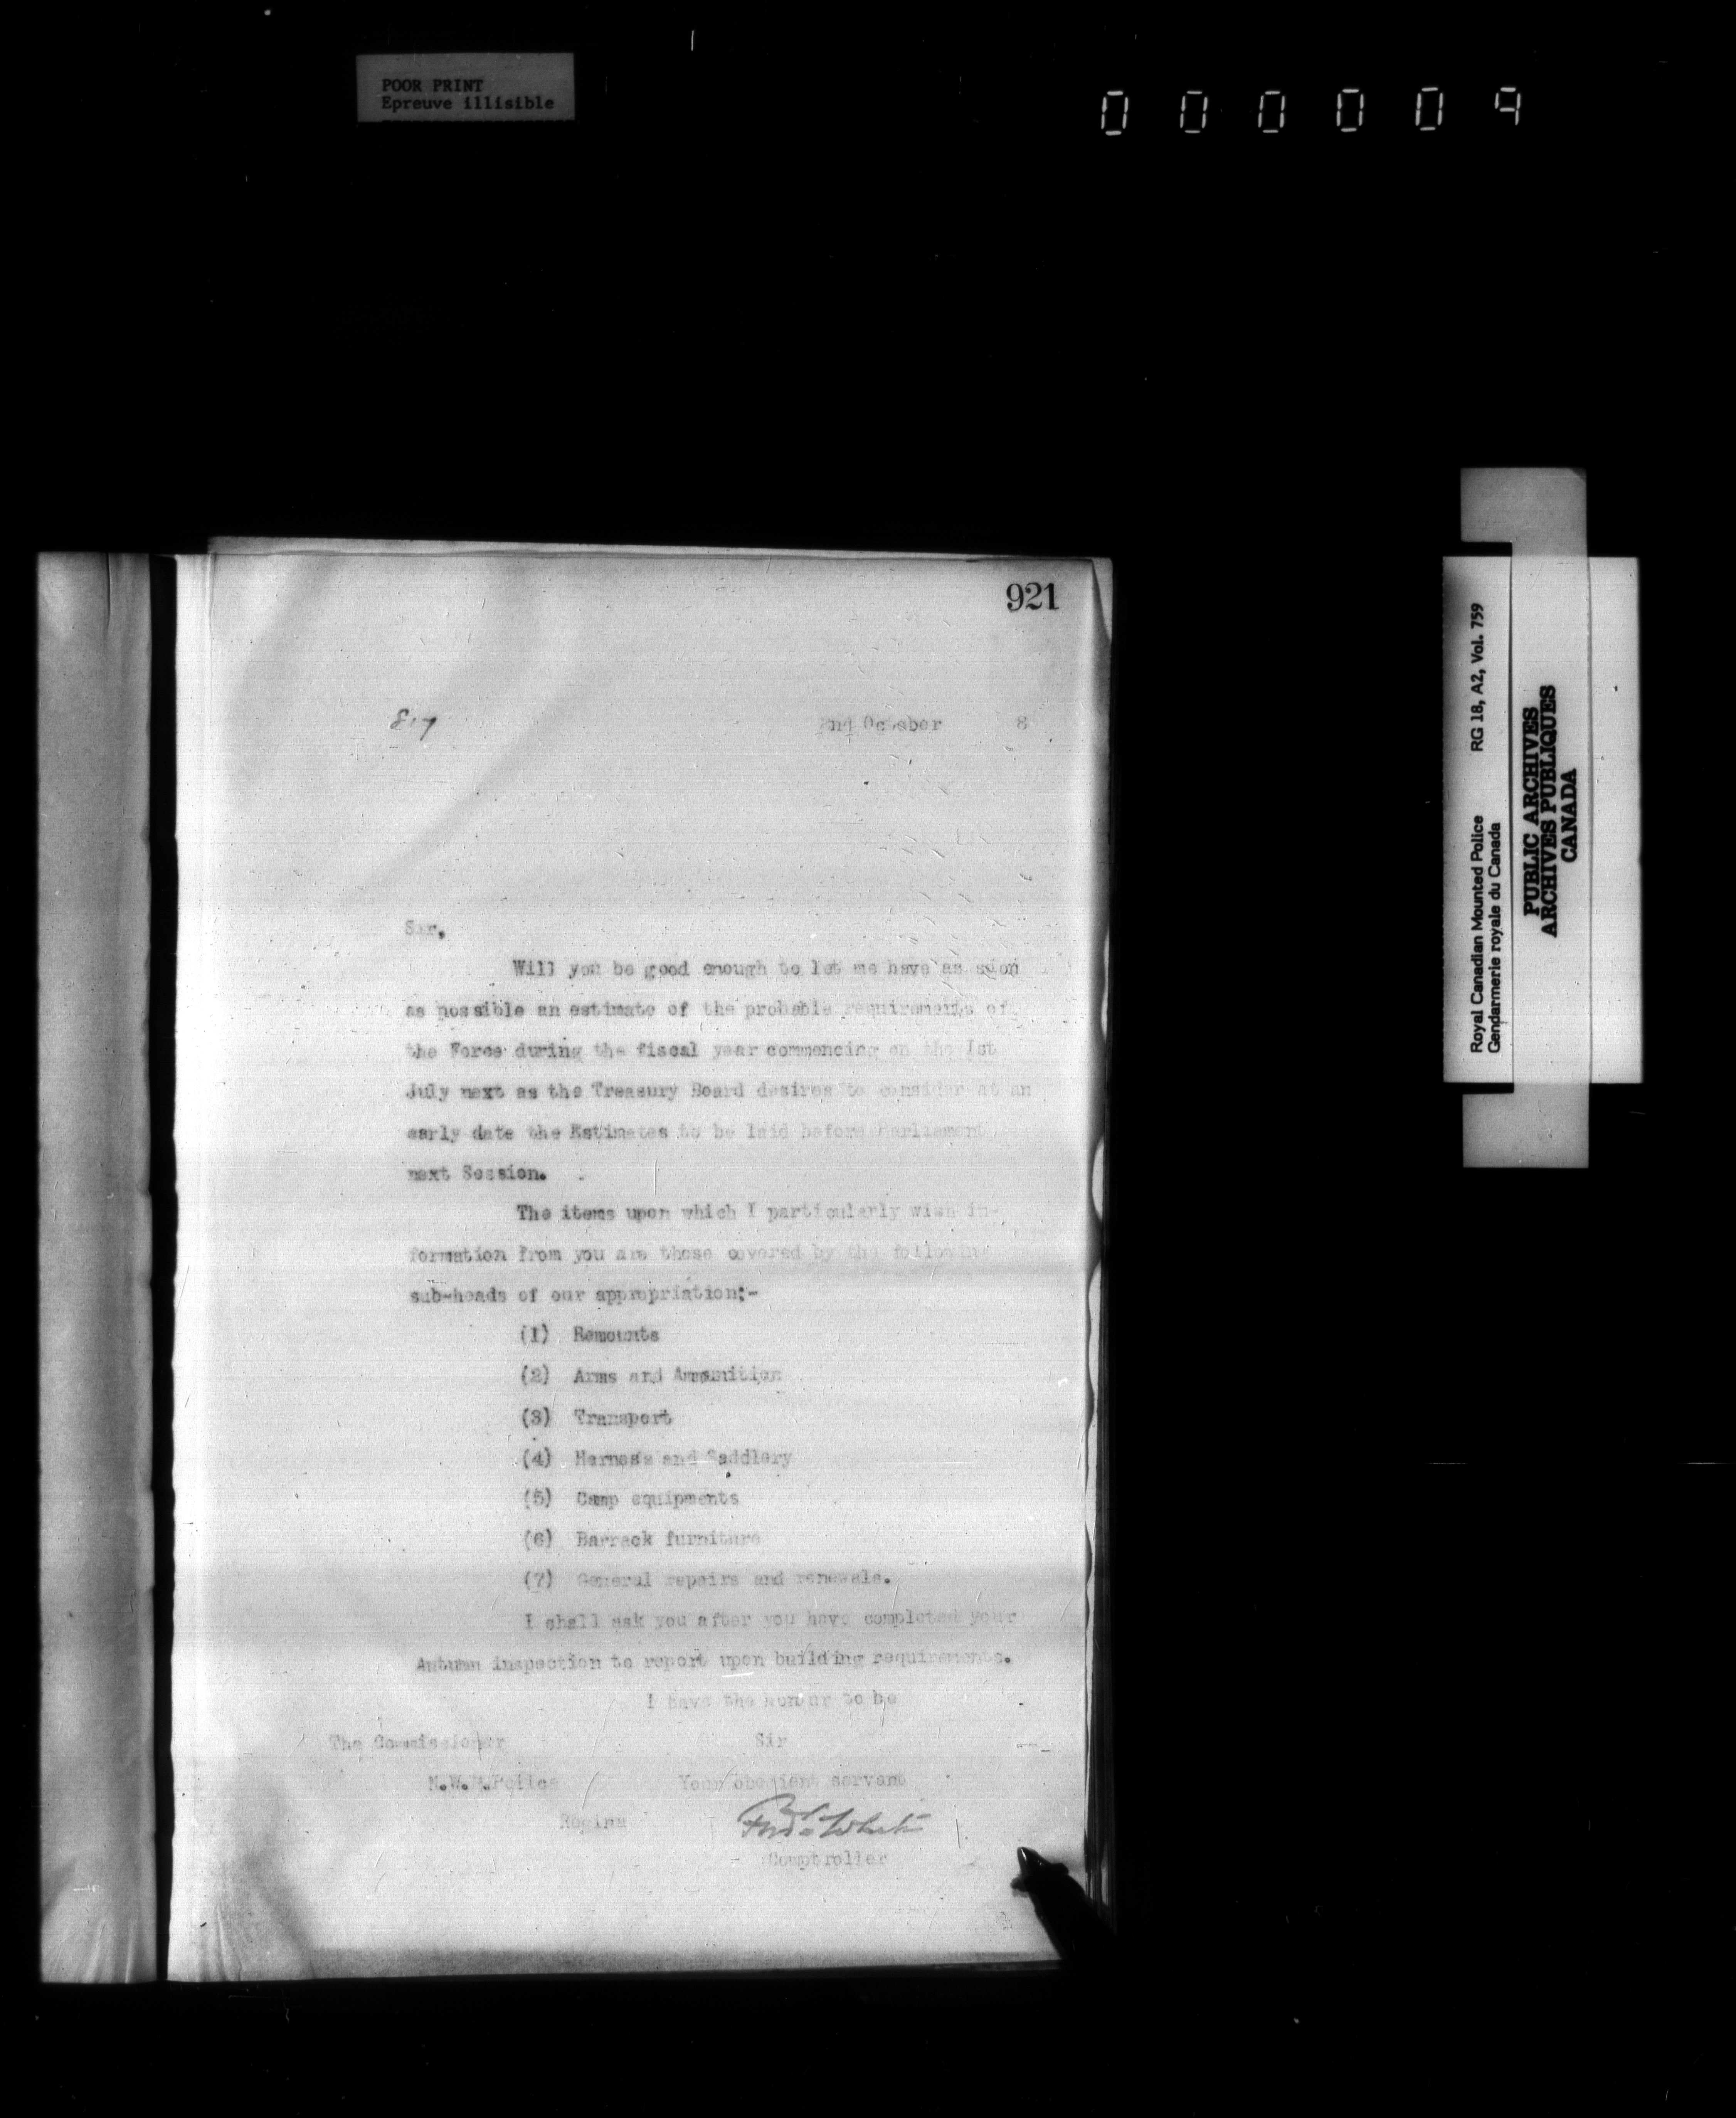 POOR PRINT
Epreuve illisible
000009
921
817
2nd October 8
Sir,
Will you be good enough to let me have as soon
as possible an estimate of the probable requirements of
the Force during the fiscal year commencing on the Ist
July next as the Treasury Board desires to consider at an
early date the Estimates to be laid before Parliament
next Session.
The items upon which I particularly wish in-
formation from you are those covered by the following
sub-heads of our appropriation:-
(1) Remounts
(2) Arms and Ammunition
(3) Transport
(4) Harness and Saddlery
(5) Camp equipments
(6) Barrack furniture
(7) General repairs and renewals.
I shall ask you after you have completed your
Autumn inspection to report upon building requirements.
I have the honour to be
The Commissioner Sir
N.W.M.Police Your obedient servant
Regina Fred White
Comptroller
Royal Canadian Mounted Police RG 18, A2, Vol. 759
Gendarmerie royale du Canada
PUBLIC ARCHIVES
ARCHIVES PUBLIQUES
CANADA